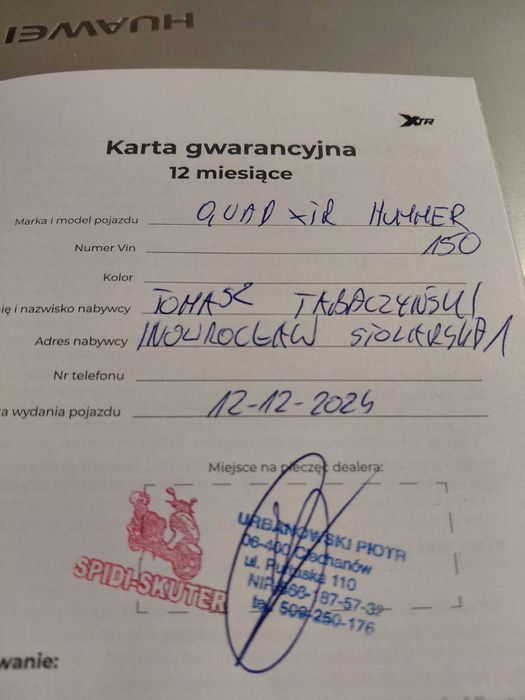 HUAWEI
XTR
Karta gwarancyjna
12 miesiące
Marka i model pojazdu QUAD XTR HUMMER
Numer Vin 150
Kolor
ię i nazwisko nabywcy TOMASZ TABACZYŃSKI
Adres nabywcy INOWROCŁAW STOLARSKA 1
Nr telefonu
ta wydania pojazdu 12-12-2024
Miejsce na pieczęć dealera:
SPIDI-SKUTER
URBANOWSKI PIOTR
06-400 Ciechanów
ul. Pułtuska 110
NIP 566-187-57-39
tel. 509-250-176
wanie: